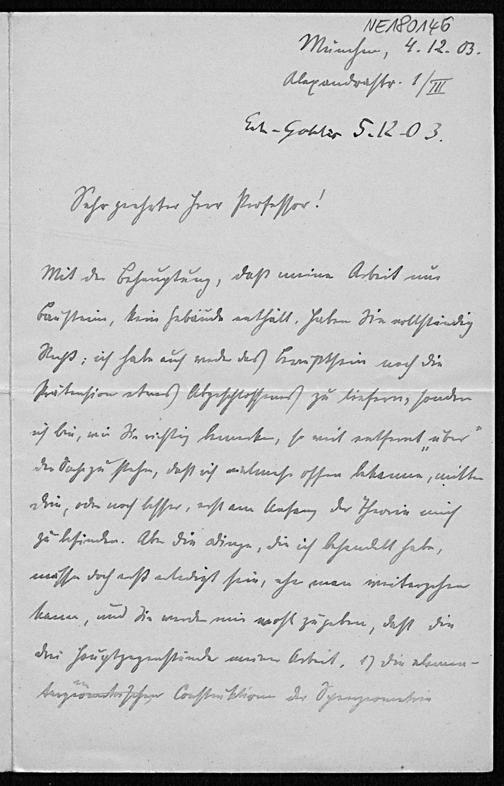 NE180146
München, 4.12.03.
Alexandrastr. 1/III
5.12.03.
Sehr geehrter Herr Professor!
Mit der Behauptung, daß meine Arbeit nur
Baustein, kein Gebäude enthält, haben Sie vollständig
Recht; ich habe auch weder das Bewußtsein noch die
Prätension etwas Abgeschlossenes zu liefern, sondern
ich bin, wie Sie richtig bemerken, so weit entfernt „über"
der Sache zu stehen, daß ich vielmehr offen bekenne, mitten
drin, oder noch besser, erst am Anfang der Theorie mich
zu befinden. Aber die Dinge, die ich behandelt habe,
müssen doch erst erledigt sein, ehe man weitergehen
kann, und Sie werden mir wohl zugeben, daß die
drei Hauptgegenstände meiner Arbeit, 1) die elemen-
Constructionen der